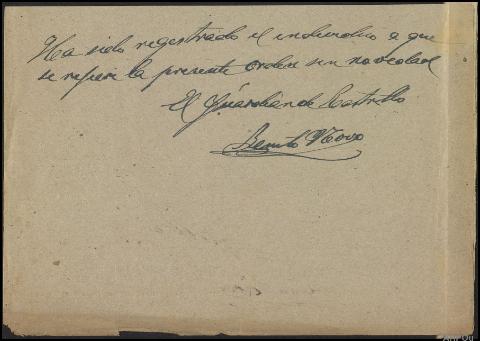 Ha sido registrado el individuo a que
se refiere la presente orden sin novedad
El Guardian de Castrillo
Benito Novo